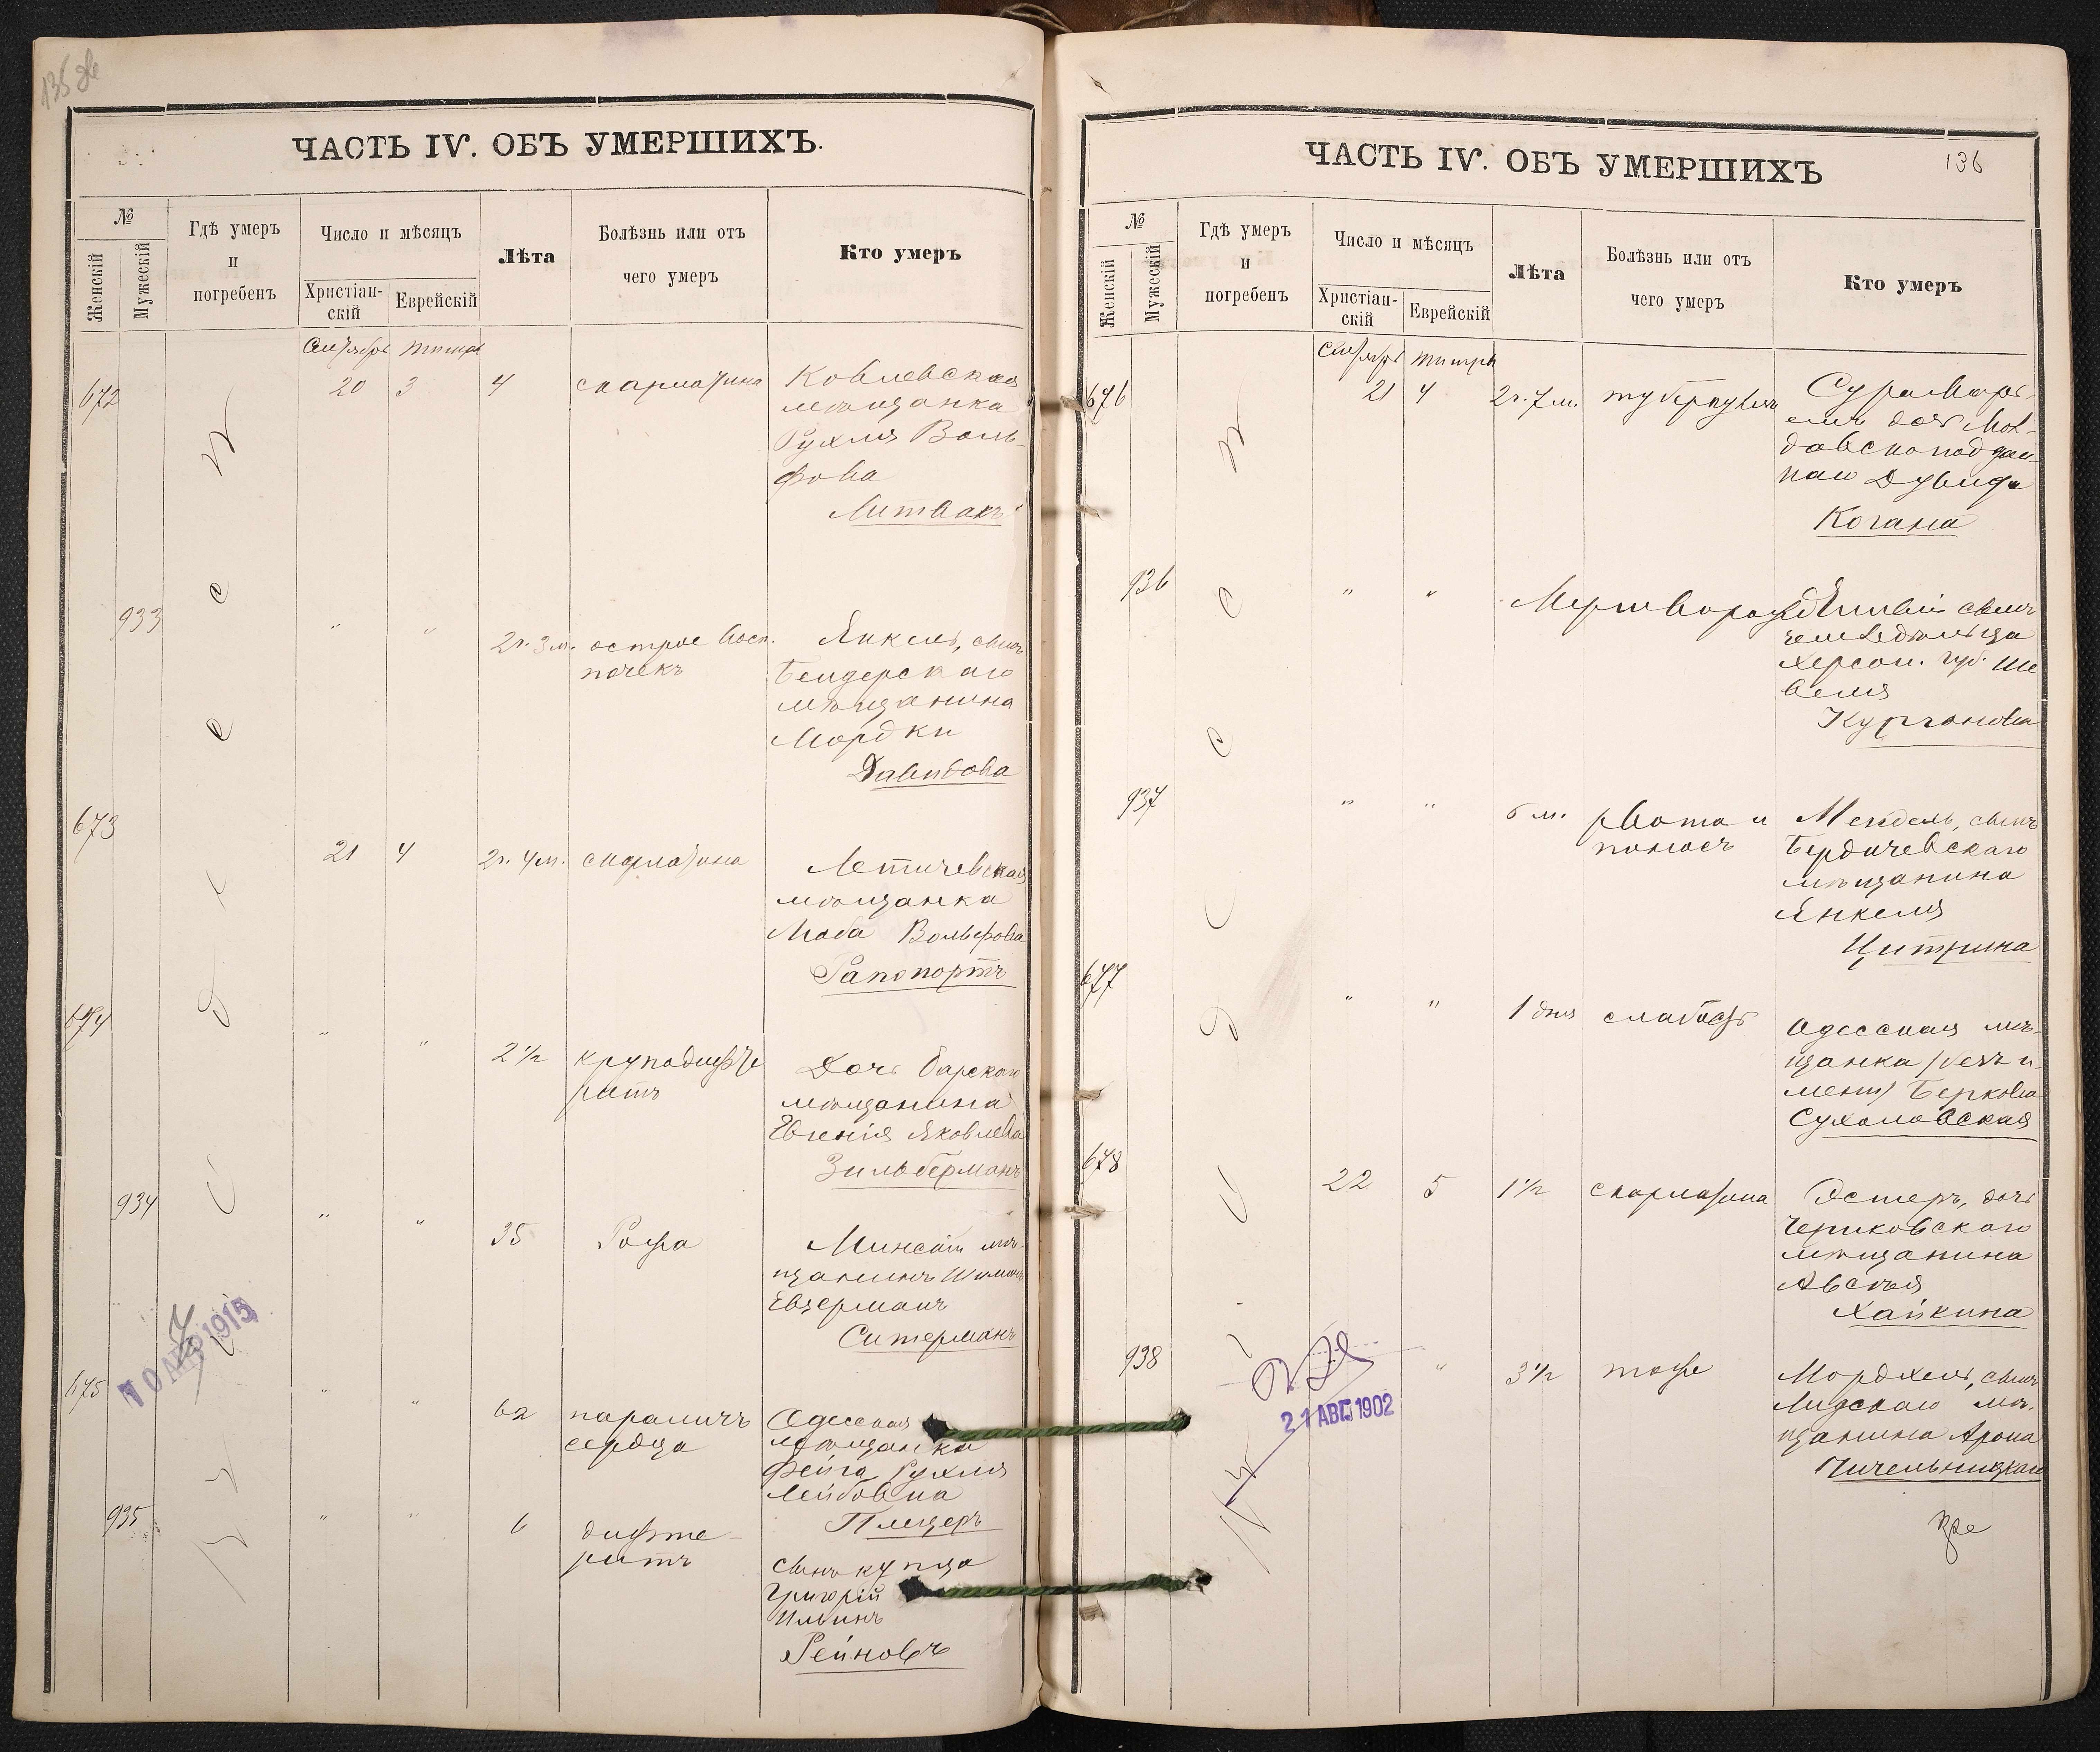 135 об
ЧАСТЬ IV. ОБЪ УМЕРШИХЪ.
№
Женскій
Мужескій
Гдѣ умеръ
и
погребенъ
Число и мѣсяцъ
Христіан-
скій
Еврейскій
Лѣта
Болѣзнь или отъ
чего умеръ
Кто умеръ
Сентябрь Тишри
672 20 3 4 скарлатина Ковлевская
мѣщанка
Рухля Воль-
фова
Литвакъ
933 " " 2г. 3м. острое восп. Янкель, сынъ
почекъ Бендерскаго
мѣщанина
Мордки
Давидова
673 21 4 2г. 4м. скарлатина Летичевская
мѣщанка
Вольфова
Рапопортъ
674 " " 2 1/2 круподифте
ритъ Дочь барскаго
мѣщанина
Евгенія Яковлева
Зильберманъ
934 " " 35 Рожа Минскій мѣ-
щанинъ
Ситерманъ
10 1915
675 " " 62 параличъ Одесская
сердца мѣщанка
Фейга Рухля
Лейбовна
Плецеръ
935 " " 6 дифте-
ритъ сынъ купца
Григорій
Ильинъ
Рейновъ
ЧАСТЬ IV. ОБЪ УМЕРШИХЪ
136
№
Женскій
Мужескій
Гдѣ умеръ
и
погребенъ
Число и мѣсяцъ
Христіан-
скій
Еврейскій
Лѣта
Болѣзнь или отъ
чего умеръ
Кто умеръ
Сентябрь Тишри
676 21 4 2г. 7м. туберкулезъ Сура Мар-
дочь Мол-
давскоподдан-
наго Дувида
Когана
936 " " Мертворожд сынъ
земледѣльца
Херсон. губ. Ше
веля
Курганова
937 " " 6 м. рвота и Мендель, сынъ
поносъ Бердичевскаго
мѣщанина
Янкеля
Цитрина
677 " " 1 дня слабость Одесская мѣ-
щанка (безъ и-
мени) Беркова
Сухоловская
678 22 5 1 1/2 скарлатина Эстеръ, дочь
Чериковскаго
мѣщанина
Авсѣя
Хайкина
938 " 3 1/2 тоже Мордхель, сынъ
Лидскаго мѣ-
щанина Арона
Пичельницкаго
21 АВГ. 1902